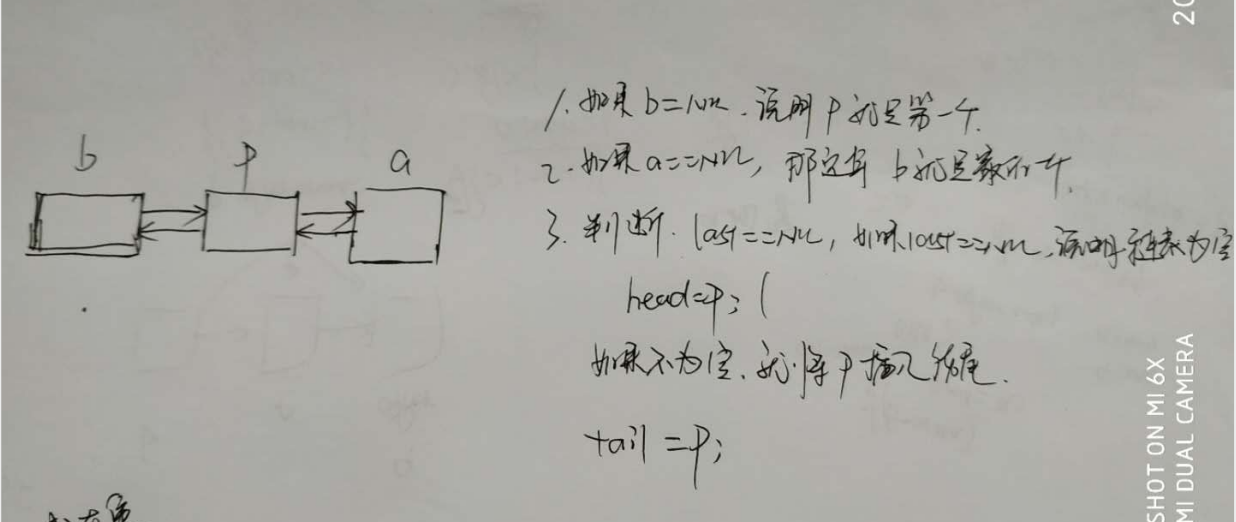 b p a
1. 如果 b=Null. 说明 P 就是第一个.
2. 如果 a==Null, 那这时 b 就是最后一个.
3. 判断. last==Null, 如果 last==Null, 说明链表为空
head=P; (
如果不为空、就将 P 插入结尾.
tail =P;
SHOT ON MI 6X
MI DUAL CAMERA
20